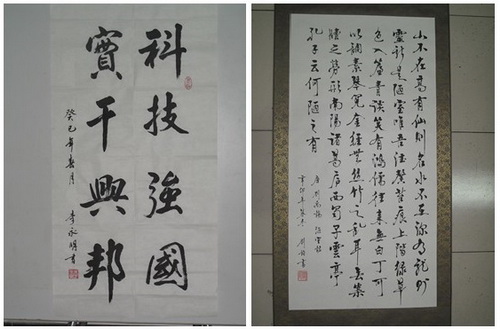 科技強國
實干興邦
癸巳年春月 李永明書
山不在高有仙則名水不在深有龍則
靈斯是陋室唯吾德馨苔痕上階綠草
色入簾青談笑有鴻儒往來無白丁可
以調素琴閱金經無絲竹之亂耳無案
牘之勞形南陽諸葛廬西蜀子雲亭
孔子云何陋之有
唐劉禹錫陋室銘
辛卯年 書